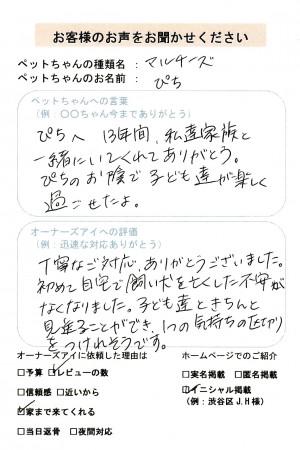 お客様のお声をお聞かせください
ペットちゃんの種類名 : マルチーズ
ペットちゃんのお名前 : ぴち
ペットちゃんへの言葉
(例:○○ちゃん今までありがとう)
ぴちへ 13年間、私達家族と
一緒にいてくれてありがとう。
ぴちのお陰で子ども達が楽しく
過ごせたよ。
オーナーズアイへの評価
(例:迅速な対応ありがとう)
丁寧なご対応、ありがとうございました。
初めて自宅で飼い犬を亡くした不安が
なくなりました。子ども達ときちんと
見送ることができ、1つの気持ちの区切り
をつけれそうです。
オーナーズアイに依頼した理由は
□予算 ☑レビューの数
□信頼感 □近いから
☑家まで来てくれる
□当日返骨 □夜間対応
ホームページでのご紹介
□実名掲載 □匿名掲載
☑イニシャル掲載
(例:渋谷区J.H様)